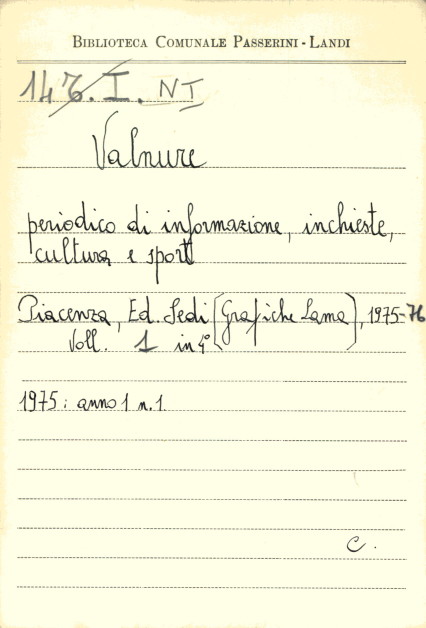 BIBLIOTECA COMUNALE PASSERINI - LANDI
146. I. NI
Valnure
periodico di informazione, inchieste,
cultura e sport
Piacenza, Ed. Sedi [Grafiche Lama], 1975-76
Voll. 1 in 4°
1975: anno 1 n. 1
C.